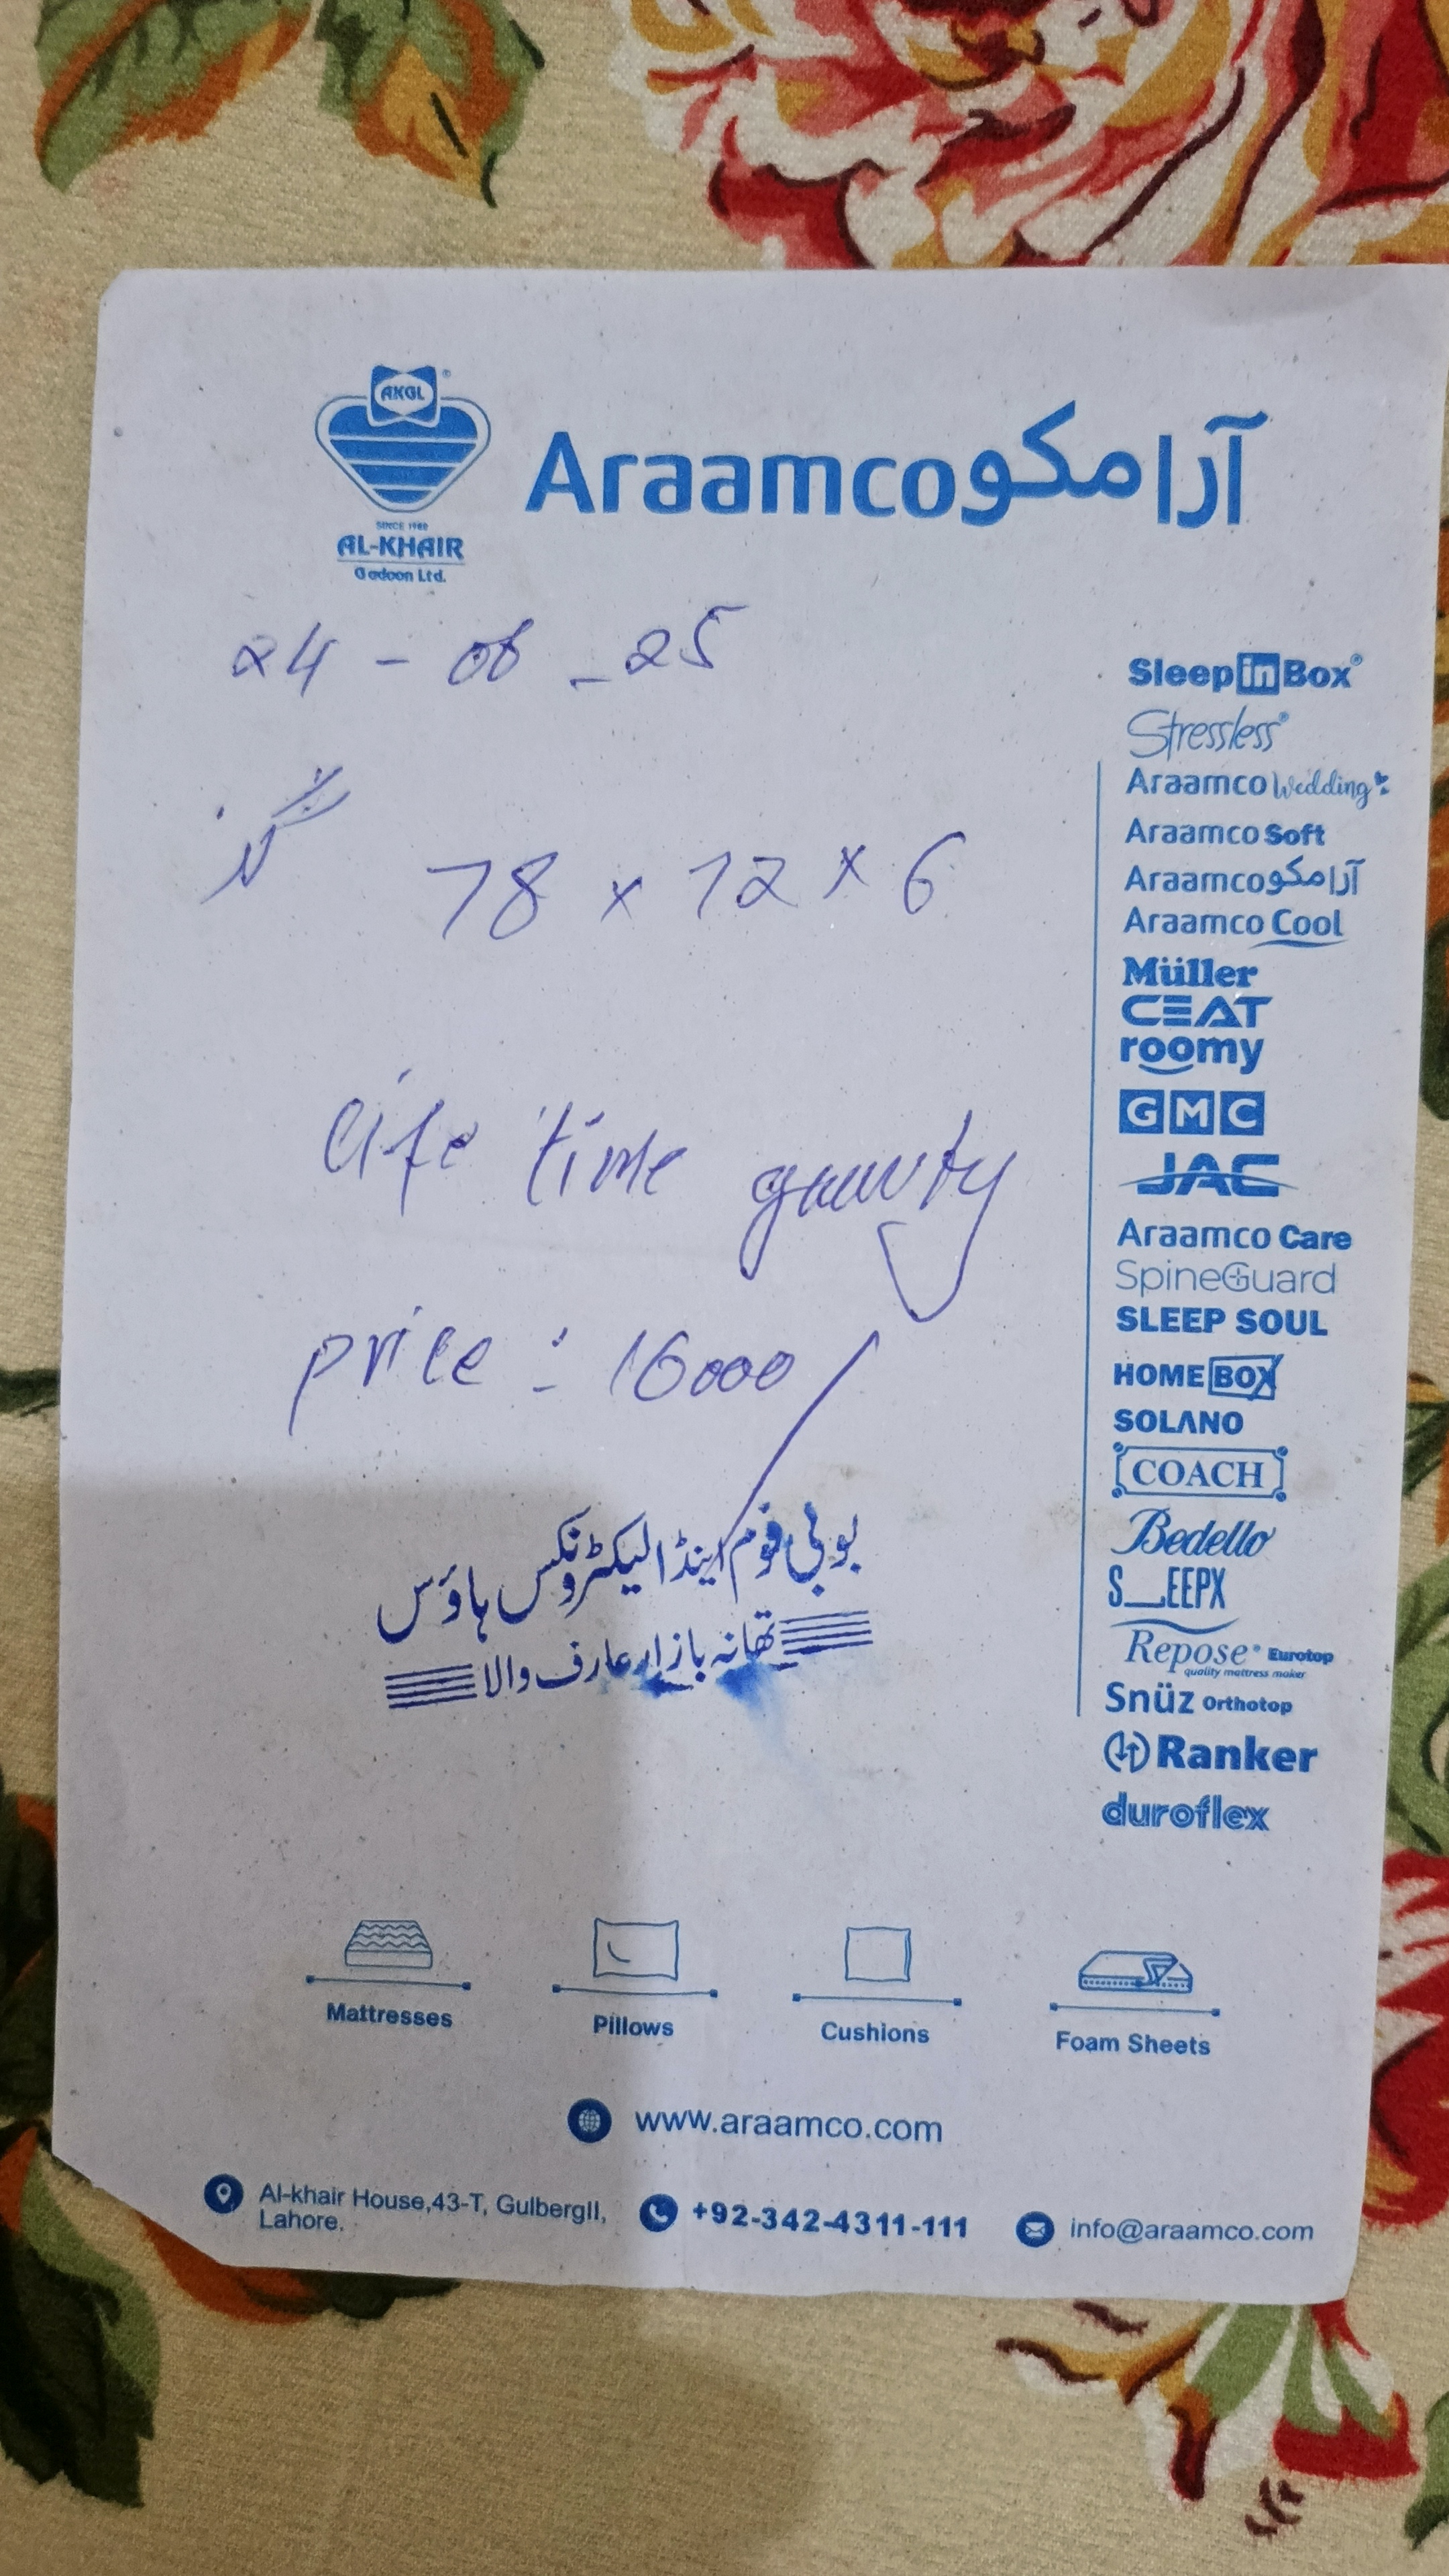 AKGL
SINCE 1980
AL-KHAIR
Gadoon Ltd.
Araamco آرامکو
24 - 06 - 25
78 x 72 x 6
life time gaurnty
price : 16000/
بوبی فوم اینڈ الیکٹرونکس ہاؤس
تھانہ بازار عارف والا
Sleep in Box
Stressless
Araamco Wedding
Araamco Soft
Araamco آرامکو
Araamco Cool
Müller
CEAT
roomy
GMC
JAC
Araamco Care
SpineGuard
SLEEP SOUL
HOME BOX
SOLANO
COACH
Bedello
S_EEPX
Repose Eurotop
quality mattress maker
Snüz Orthotop
Ranker
duroflex
Mattresses Pillows Cushions Foam Sheets
www.araamco.com
Al-khair House,43-T, GulbergII,
Lahore.
+92-342-4311-111
info@araamco.com